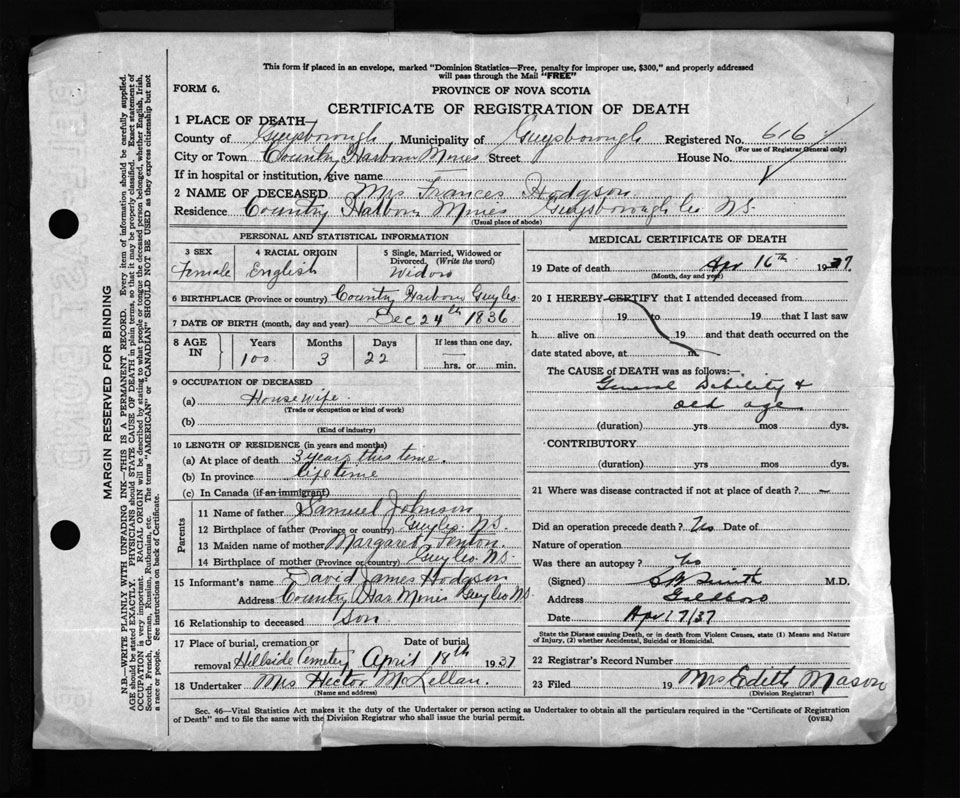 This form if placed in an envelope, marked "Dominion Statistics—Free, penalty for improper use, $300," and properly addressed
will pass through the Mail "FREE"
FORM 6.
PROVINCE OF NOVA SCOTIA
CERTIFICATE OF REGISTRATION OF DEATH
1 PLACE OF DEATH
County of Guysborough Municipality of Guysborough Registered No. 616
(For use of Registrar General only)
City or Town Country Harbour Mines Street House No.
If in hospital or institution, give name
2 NAME OF DECEASED Mrs Frances Hodgson
Residence Country Harbour Mines Guysborough Co N.S.
(Usual place of abode)
PERSONAL AND STATISTICAL INFORMATION
3 SEX Female
4 RACIAL ORIGIN English
5 Single, Married, Widowed or Divorced. (Write the word) Widow
6 BIRTHPLACE (Province or country) Country Harbour Guy Co.
7 DATE OF BIRTH (month, day and year) Dec 24th 1836
8 AGE IN Years 100 Months 3 Days 22 If less than one day, hrs. or min.
9 OCCUPATION OF DECEASED
(a) House Wife.
(Trade or occupation or kind of work)
(b)
(Kind of industry)
10 LENGTH OF RESIDENCE (in years and months)
(a) At place of death 3 years this time.
(b) In province life time
(c) In Canada (if an immigrant)
Parents
11 Name of father Samuel Johnson
12 Birthplace of father (Province or country) Guy Co. N.S.
13 Maiden name of mother Margaret Fenton
14 Birthplace of mother (Province or country) Guy Co N.S.
15 Informant's name David James Hodgson
Address Country Har Mines Guy Co N.S.
16 Relationship to deceased Son.
17 Place of burial, cremation or removal Hillside Cemetery
Date of burial April 18th 1937
18 Undertaker Mrs Hector McLellan.
(Name and address)
MEDICAL CERTIFICATE OF DEATH
19 Date of death Apr 16th 1937.
(Month, day and year)
20 I HEREBY CERTIFY that I attended deceased from
19 to 19 that I last saw
h alive on 19 and that death occurred on the
date stated above, at m.
The CAUSE of DEATH was as follows:—
General Debility &
old age
(duration) yrs mos dys.
CONTRIBUTORY
(duration) yrs mos dys.
21 Where was disease contracted if not at place of death? —
Did an operation precede death? No Date of
Nature of operation
Was there an autopsy? No
(Signed) Smith M.D.
Address Goldboro
Date Apr 17/37
State the Disease causing Death, or in death from Violent Causes, state (1) Means and Nature
of Injury, (2) whether Accidental, Suicidal or Homicidal.
22 Registrar's Record Number
23 Filed 19 Mrs Edith Mason
(Division Registrar)
Sec. 46—Vital Statistics Act makes it the duty of the Undertaker or person acting as Undertaker to obtain all the particulars required in the "Certificate of Registration
of Death" and to file the same with the Division Registrar who shall issue the burial permit.
(OVER)
MARGIN RESERVED FOR BINDING
N.B.—WRITE PLAINLY WITH UNFADING INK—THIS IS A PERMANENT RECORD. Every item of information should be carefully supplied.
AGE should be stated EXACTLY. PHYSICIANS should STATE CAUSE OF DEATH in plain terms, so that it may be properly classified. Exact statement of
OCCUPATION is very important. RACIAL ORIGIN will be described by stating to what people or tongue the deceased person belonged, whether English, Irish,
Scotch, French, German, Russian, Ruthenian, etc. The terms "AMERICAN" or "CANADIAN" SHOULD NOT BE USED as they express citizenship but not
a race or people. See instructions on back of Certificate.